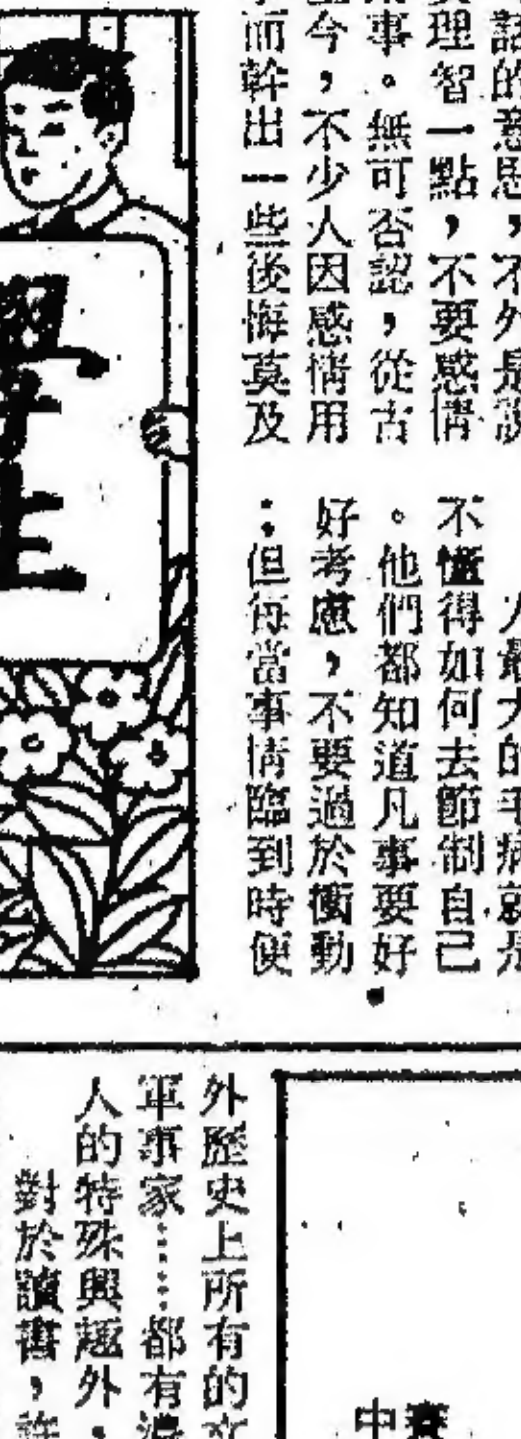 話的意思，不外是說
理智一點，不要感情
事。無可否認，從古
今，不少人因感情用
而幹出一些後悔莫及
人最大的毛病就是
不懂得如何去節制自己
。他們都知道凡事要好
好考慮，不要過於衝動
；但每當事情臨到時便
學生
外歷史上所有的文
軍事家……都有濃
人的特殊興趣外，
對於讀書，許
中